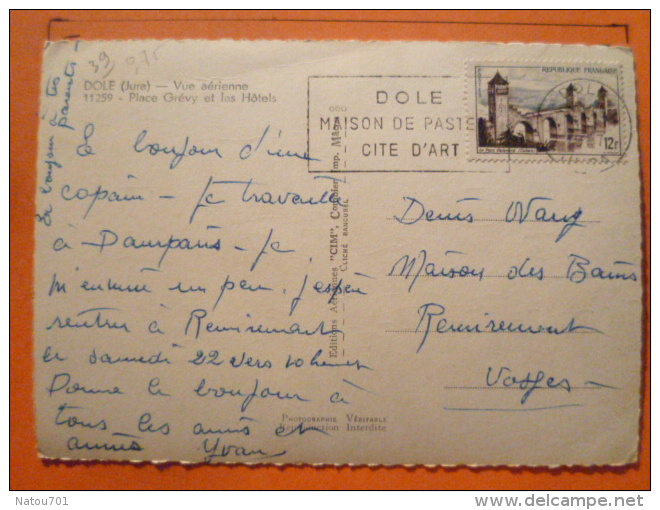 39 0,75
DOLE (Jura) — Vue aérienne
11259 - Place Grévy et les Hôtels
Le bonjour d'un
copain — Je travaille
à Damparis — Je
m'ennuie un peu. J'espère
rentrer à Remiremont
le samedi 22 vers 10 heures
Donne le bonjour à
tous les amis et
amies Yvan
Le bonjour à tes
parents
Editions Aériennes "CIM", Combier Imp. Mâcon
CLICHÉ RANCUREL
PHOTOGRAPHIE VÉRITABLE
Reproduction Interdite
DOLE
MAISON DE PASTE
CITE D'ART
REPUBLIQUE FRANÇAISE
12f
DOLE
Denis Wang
Maison des Bains
Remiremont
Vosges
Natou701
delcampe.net